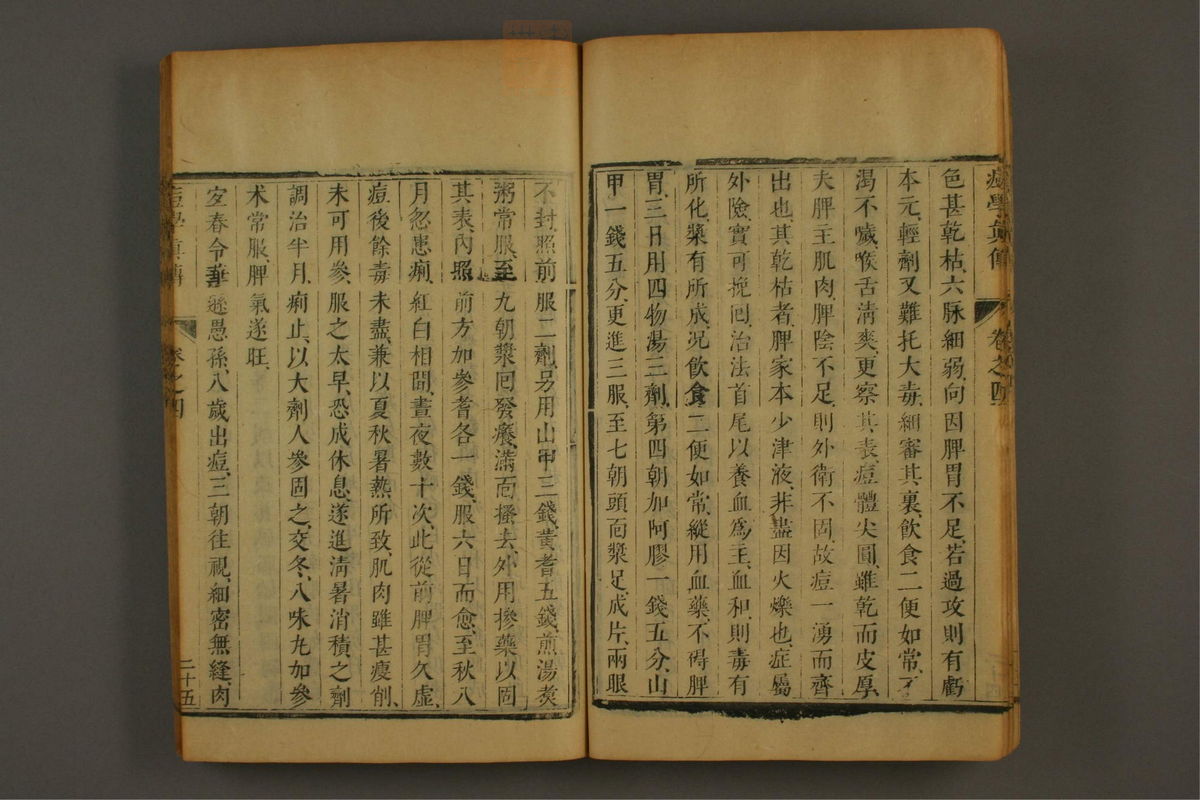 痘學真傳
卷之四
色甚乾枯、六脉細弱、向因脾胃不足、若過攻則有虧
本元、輕劑又難托大毒、細審其裏、飲食二便如常、不
渴不嘁、喉舌淸爽、更察其表、痘體尖圓、雖乾而皮厚、
夫脾主肌肉、脾陰不足、則外衛不固、故痘一湧而齊
出也、其乾枯者、脾家本少津液、非盡因火爍也、症屬
外險、實可挽囘、治法首尾以養血爲主、血和則毒有
所化、漿有所成、况飲食二便如常、縱用血藥、不碍脾
胃、三日用四物湯三劑、第四朝加阿膠一錢五分、山
甲一錢五分、更進三服、至七朝頭面漿足、成片、兩眼
不封、照前服二劑、另用山甲三錢、黄耆五錢、煎湯煑
粥常服、至九朝漿囘發癢、滿面搔去、外用摻藥以固
其表、内照前方加參耆各一錢、服六日而愈、至秋八
月忽患痢、紅白相間、晝夜數十次、此從前脾胃久虛、
痘後餘毒未盡、兼以夏秋暑熱所致、肌肉雖甚瘦削、
未可用參、服之太早、恐成休息、遂進淸暑消積之劑
調治半月、痢止、以大劑人參固之、交冬、八味丸加參
术常服、脾氣遂旺、
宜春令 遜愚孫、八歲出痘、三朝往視、細密無縫、肉
痘學真傳
卷之四
二十五